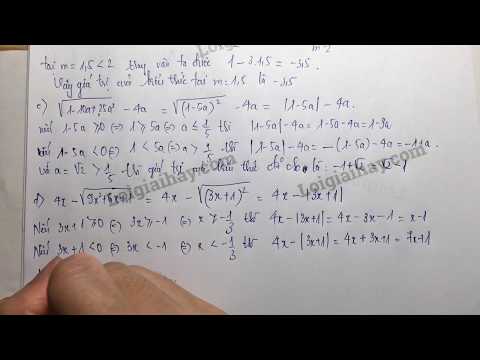 m-2
tại m = 1,5 < 2 thay vào ta được 1 - 3.1,5 = -3,5.
Vậy giá trị của biểu thức tại m = 1,5 là -3,5
c) √(1-10a+25a²) - 4a = √((1-5a)²) - 4a = |1-5a| - 4a.
nếu 1-5a ≥0 ⇔ 1 ≥ 5a ⇔ a ≤ 1/5 thì |1-5a| - 4a = 1-5a-4a = 1-9a
Nếu 1-5a < 0 ⇔ 1 < 5a ⇔ a > 1/5 thì |1-5a| - 4a = -(1-5a) - 4a =
với a = √2 > 1/5 thì giá trị của biểu thức là :
d) 4x - √(9x²+6x+1) = 4x - √((3x+1)²) = 4x - |3x+1|
Nếu 3x+1 ≥0 ⇔ 3x ≥ -1 ⇔ x ≥ -1/3 thì 4x - |3x+1| = 4x - 3x - 1 = x-1
Nếu 3x+1 <0 ⇔ 3x < -1 ⇔ x < -1/3 thì 4x - |3x+1| = 4x + 3x+1 = 7x+1
Loigiaihay.com
Loigiaihay.com